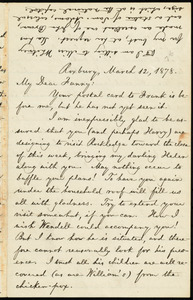 Roxbury, March 12, 1878.
My Dear Fanny:
Your postal card to Frank is before
me, but he has not yet seen it.
I am inexpressibly glad to be assured
that you (and perhaps Harry) are
designing to visit Rockledge toward the close
of this week, bringing my darling Helen
along with you. May nothing occur to
baffle your plans! To have you again
under the household roof will fill us
all with gladness. Try to extend your
visit somewhat, if you can. How I
wish Wendell could accompany you!
But I know how he is situated, and therefore
cannot reasonably look for his presence.
I trust all his children are well recovered
(as are William's) from the
chicken-pox.